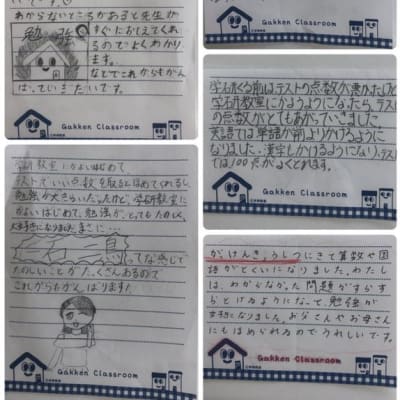 わからないところがあると先生が
すぐにおしえてくれ
るのでよくわかり
ます。
なのでこれからもがん
ばっていきたいです。
勉強
Gakken Classroom
学研教室にかよいはじめて
テストでいい点数を取るとほめてくれるし
勉強が大きらいだったけど、学研教室に
かよいはじめて、勉強が、とってもたのしく、
大好きになりました。まさに…
って感じで
たのしいことがたくさんあるので
これからもがんばります!
Gakken Classroom
Gakken Classroom
学研くる前はテストの点数が悪かったけど
学研教室にかようようになったら、テスト
の点数がとてもあがっていきました。
英語では単語が前よりかけるように
なりました。漢字もかけるようになり、テスト
では100点がよくとれます。
Gakken Classroom
がっけんきょうしつにきて算数や国
語がとくいになりました。わたし
は、わからなかった問題がすらす
らとけるようになって、勉強が
好きになりました。お父さんやお母さん
にもほめられるのでうれしいです。
Gakken Classroom